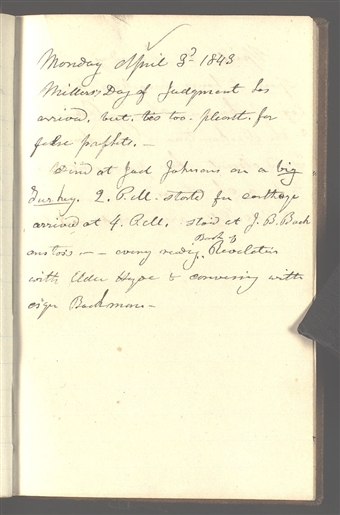 Monday April 3d 1843
Millers Day of Judgment has
arrived. but. tis too. pleasnt. for
false prophets. —
Dined at Joel Johnsons on a big
Turkey. 2. P.M. statd for carthage
arrived at 4. P.M. staid at J. B. Back
enstos — — eveng readig Book of Revelation
with Elder Hyde & conversing with
esqr Backmon —